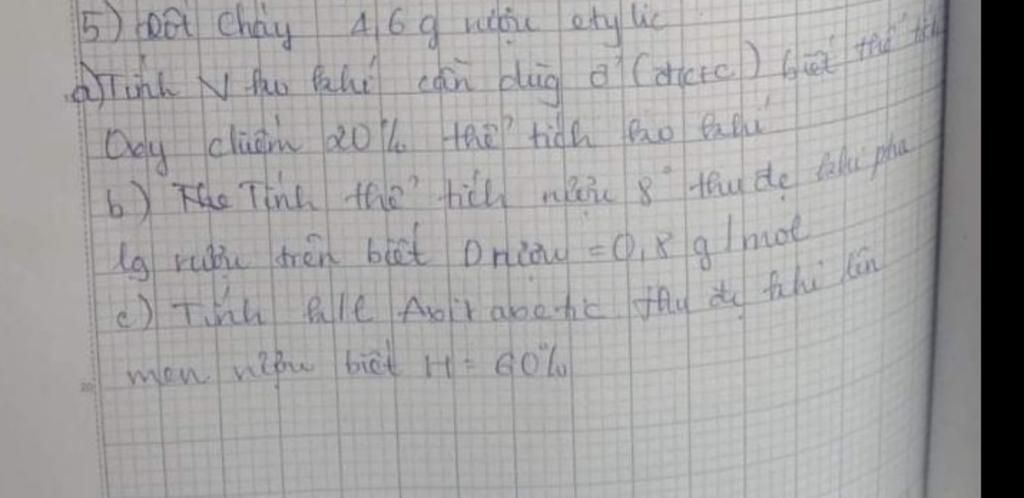 5) Đốt cháy 4,6 g rượu etylic
a) Tính V ko khí cần dùg ở (đktc) biết thể tích
Oxy chiếm 20% thể tích ko khí
b) Tính thể tích rượu 8° thu đc khi pha
lg rượu trên biết D rượu = 0,8 g/mol
c) Tính k/l Axit axetic thu đc khi lên
men rượu biết H = 60%